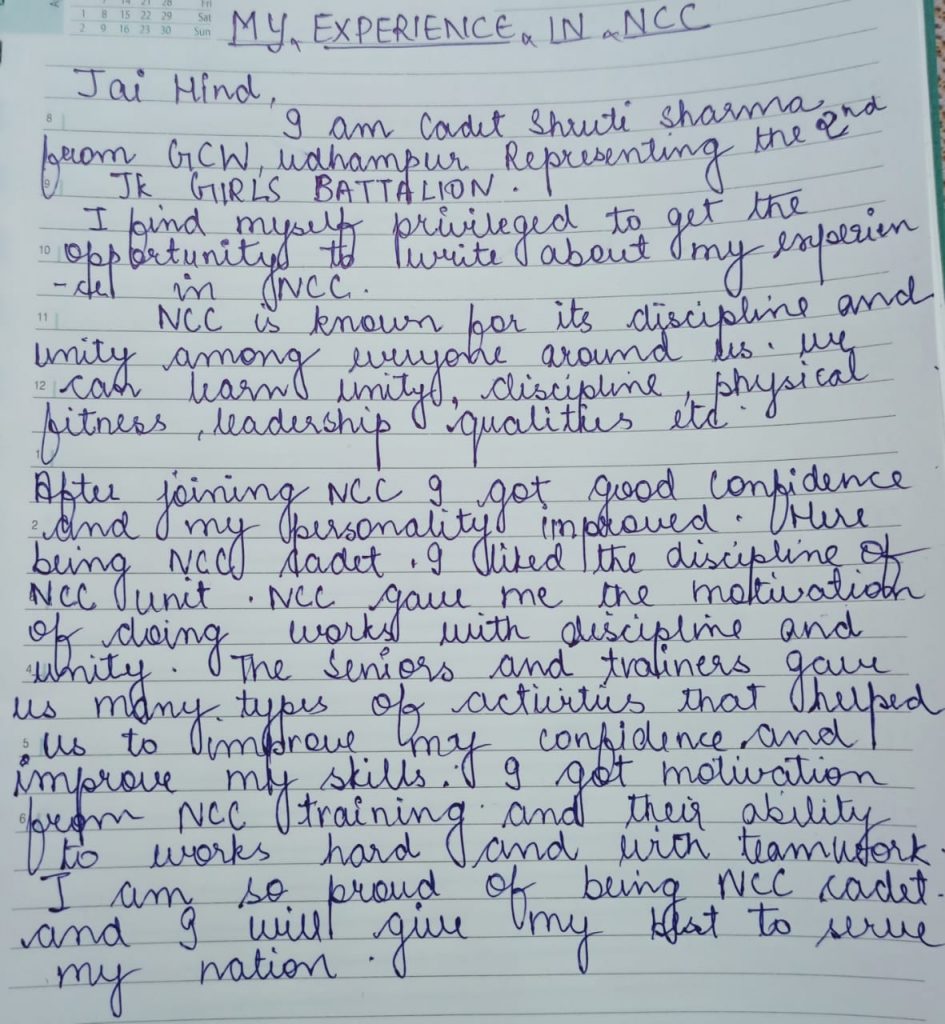 1 8 15 22 29 Sat
2 9 16 23 30 Sun
MY EXPERIENCE IN NCC
Jai Hind,
8
I am Cadet Shruti Sharma
from GCW, Udhampur Representing the 2nd
9 JK GIRLS BATTALION.
I find myself privileged to get the
10 opportunity to write about my experien
-ce in NCC.
11 NCC is known for its discipline and
unity among everyone around us. we
12 can learn unity, discipline, physical
fitness, leadership qualities etc.
1
After joining NCC I got good confidence
2 and my personality improved. Here
being NCC cadet. I liked the discipline of
NCC unit. NCC gave me the motivation
of doing works with discipline and
4 unity. The seniors and trainers gave
us many types of activities that helped
5 us to improve my confidence and
improve my skills. I got motivation
6 from NCC training and their ability
to works hard and with teamwork.
I am so proud of being NCC cadet.
and I will give my best to serve
my nation.